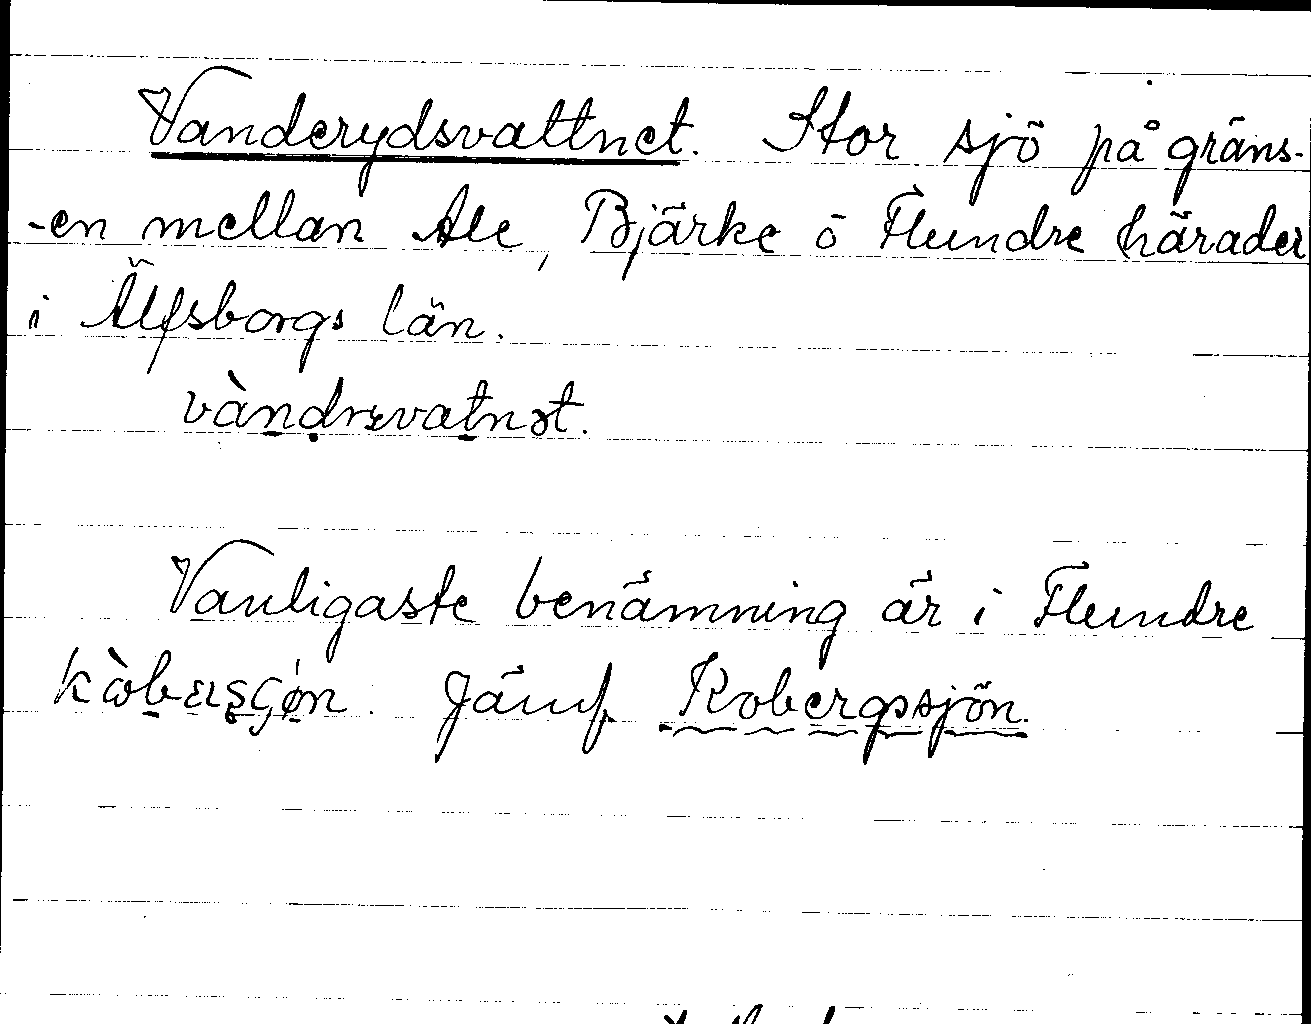 Vanderydsvattnet. Stor sjö på gräns-
-en mellan Ale, Bjärke o Flundre härader
i Älfsborgs län.
vàndrsvatnət.
Vanligaste benämning är i Flundre
kòbərsçøn. Jämf. Kobergssjön.